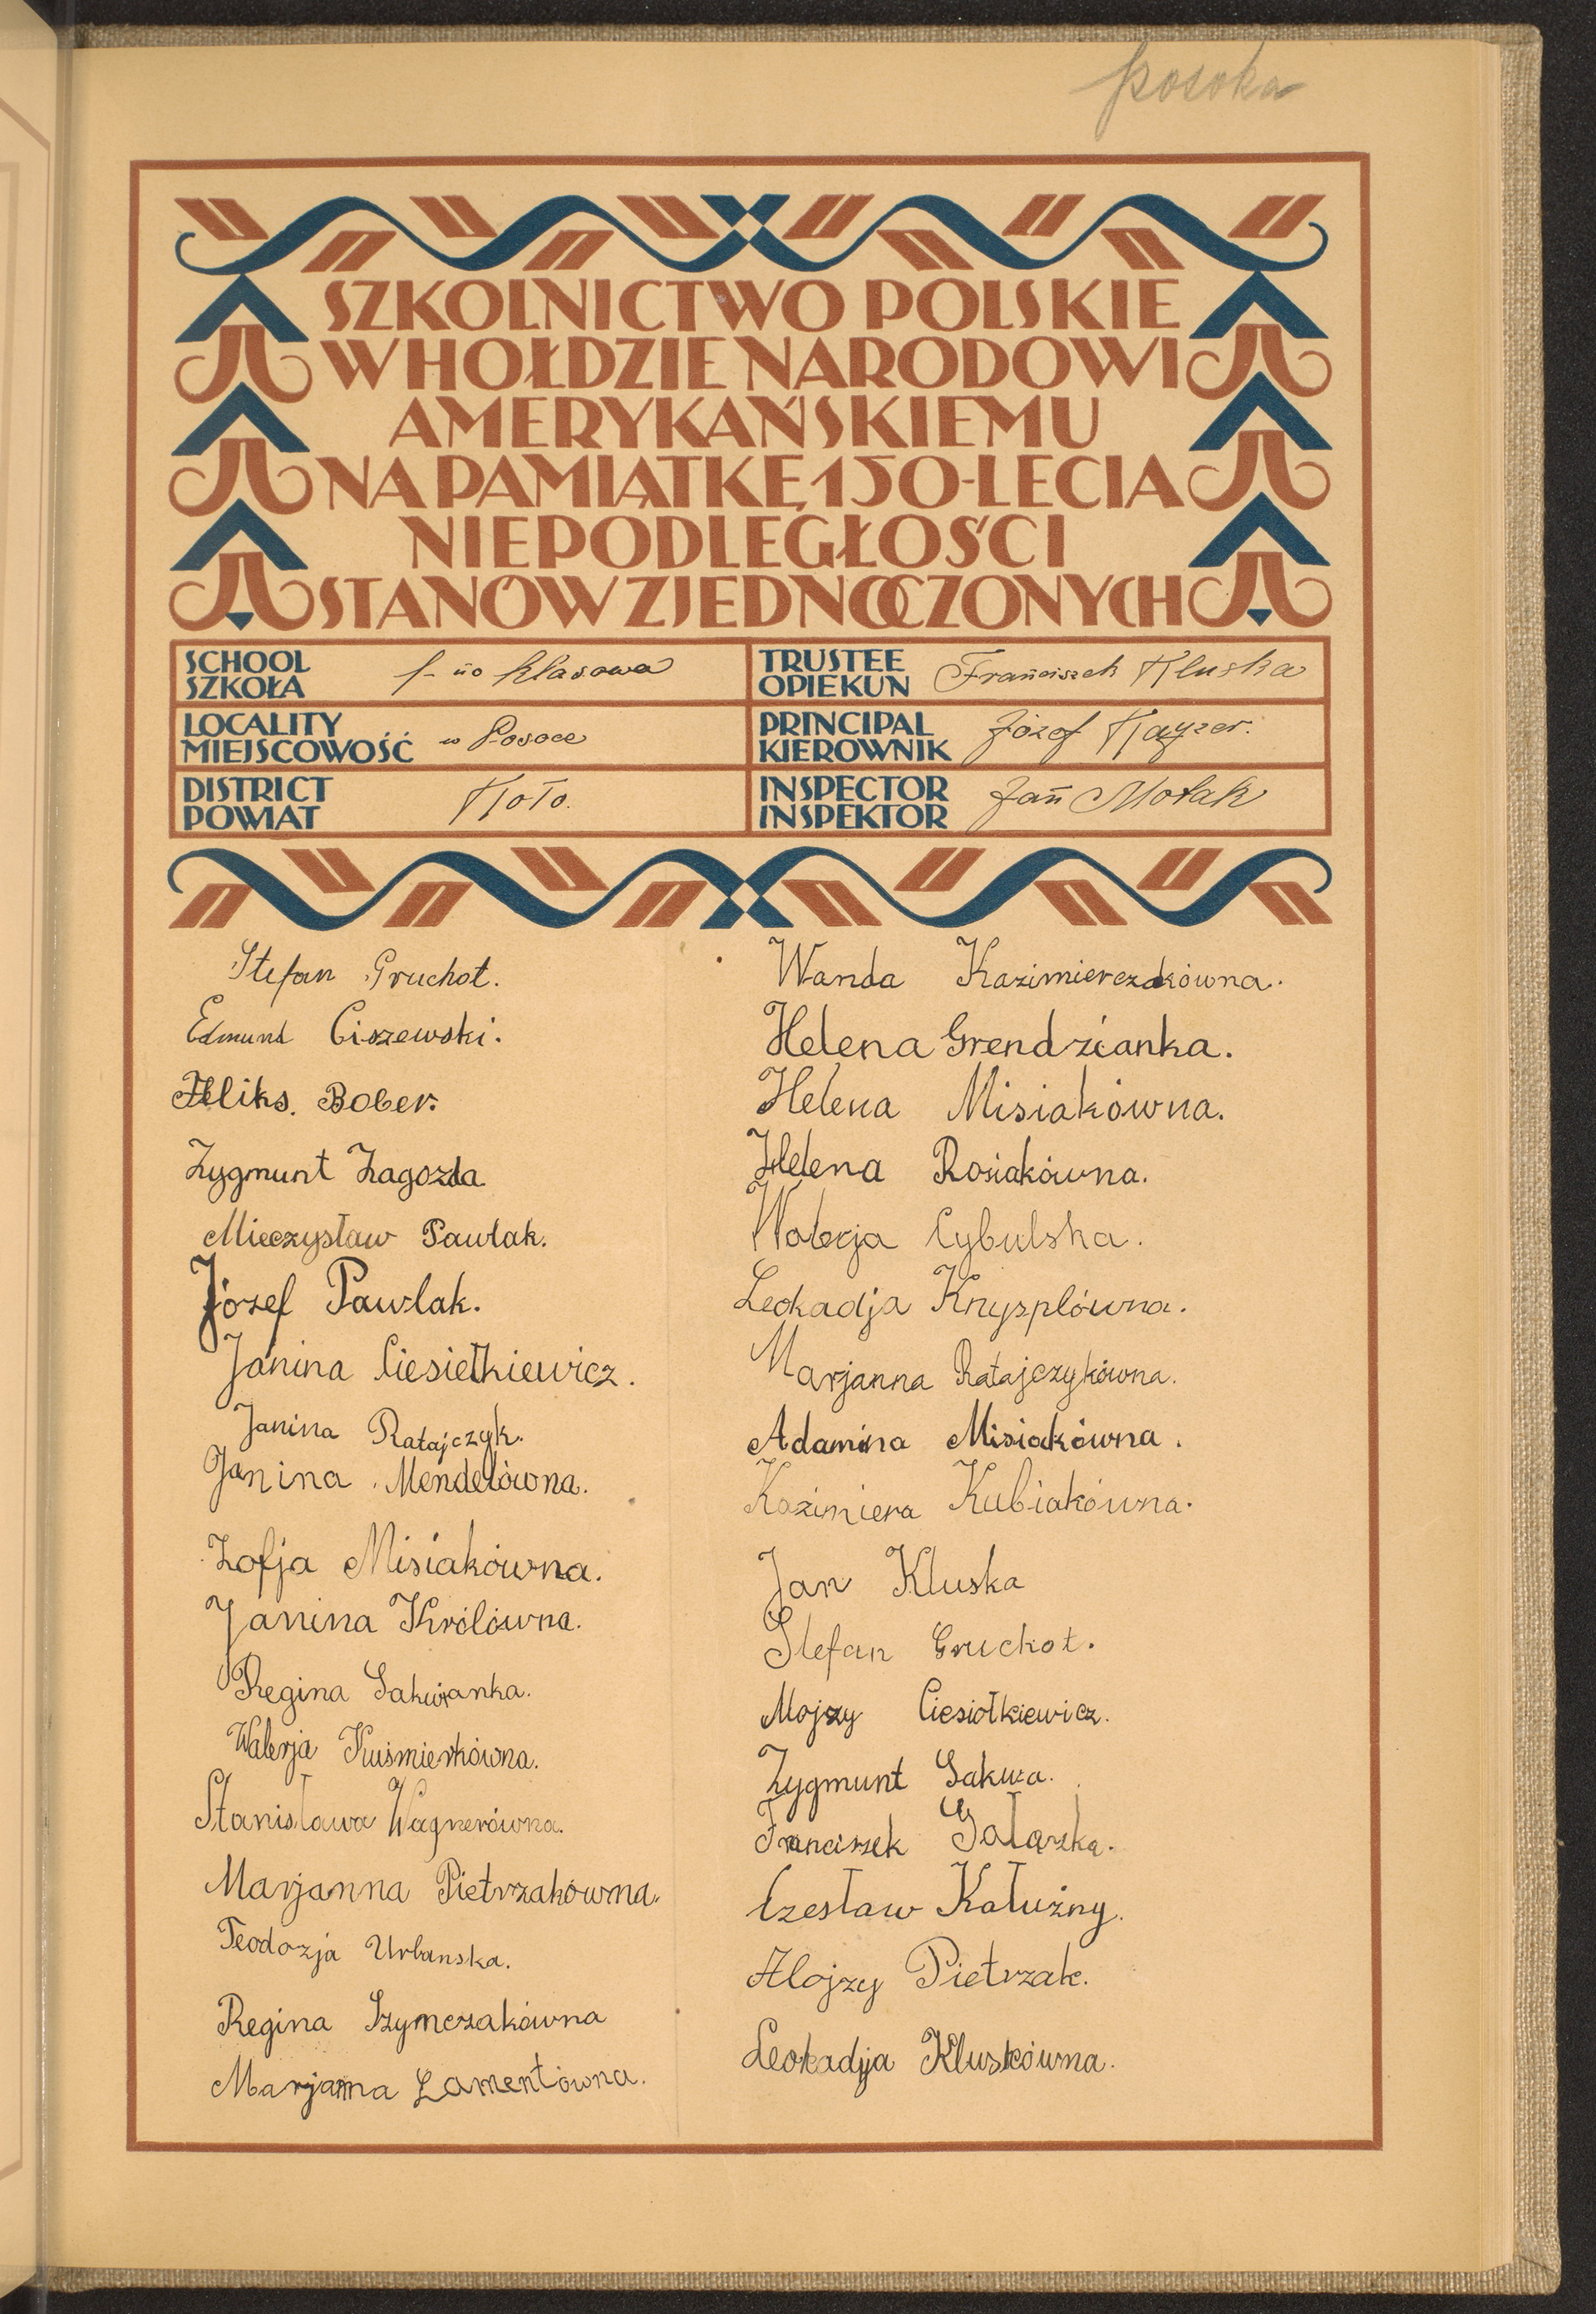 Posoka
SZKOLNICTWO POLSKIE
W HOŁDZIE NARODOWI
AMERYKAŃSKIEMU
NA PAMIĄTKĘ 150-LECIA
NIEPODLEGŁOŚCI
STANÓW ZJEDNOCZONYCH
SCHOOL
SZKOŁA
1-no klasowa
TRUSTEE
OPIEKUN
Franciszek Kluska
LOCALITY
MIEJSCOWOŚĆ
w Posoce
PRINCIPAL
KIEROWNIK
Józef Kayzer.
DISTRICT
POWIAT
Koło.
INSPECTOR
INSPEKTOR
Jan Motak
Stefan Gruchot.
Edmund Ciszewski.
Feliks. Bober.
Zygmunt Zagozda
Mieczysław Pawlak.
Józef Pawlak.
Janina Ciesiełkiewicz.
Janina Ratajczyk.
Janina Mendelówna.
Zofja Misiakówna.
Janina Królówna.
Regina Sakwianka.
Walerja Kuśmierkówna.
Stanisława Wagnerówna.
Marjanna Pietrzakówna.
Teodozja Urbanska.
Regina Szymczakówna
Marjanna Lamentówna.
Wanda Kazimierczakówna.
Helena Grendzianka.
Helena Misiakówna.
Helena Rosiakówna.
Walerja Cybulska.
Leokadja Knysplówna.
Marjanna Ratajczykówna.
Adamina Misiakówna.
Kazimiera Kubiakówna.
Jan Kluska
Stefan Gruchot.
Mojzy Ciesiołkiewicz.
Zygmunt Sakwa.
Franciszek Gałązka.
Czesław Kałużny.
Alojzy Pietrzak.
Leokadja Kluskówna.